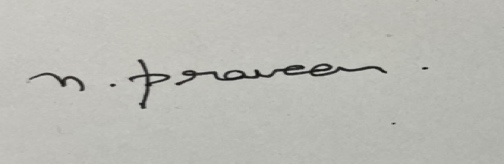 n. praveen .